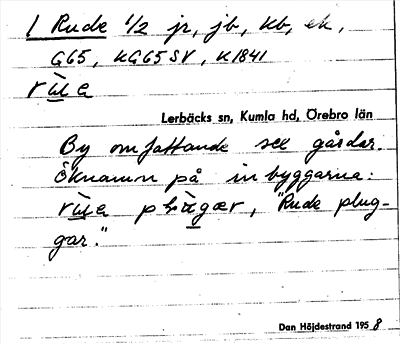 1 Rude 1/2 jr, jb, kb, ek,
G65, KG65SV, K1841
Lerbäcks sn, Kumla hd, Örebro län
By omfattande sex gårdar.
Öknamn på inbyggarna:
"Rude plug-
gar."
Dan Höjdestrand 1958